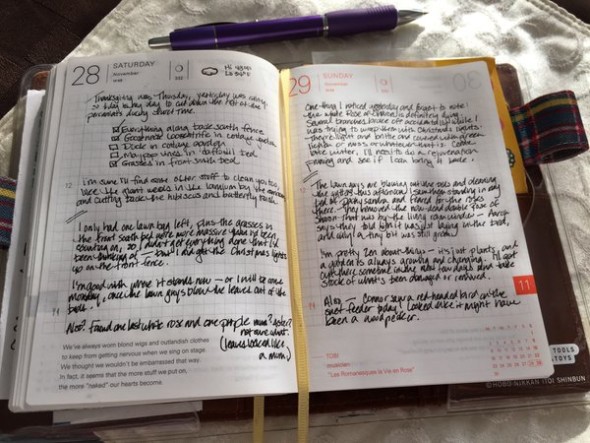 28 SATURDAY
November
Hi
Lo
Thanksgiving was Thursday, yesterday was rainy
so today is my day to cut down the rest of the
perennials during cleanup time.
Everything along back south fence
Gooseneck Loosestrife in cottage garden
Dock in cottage garden
in daffodil bed
Grasses in front south bed
12 I'm sure I'll find some other stuff to clean up too
like the giant weeds in the
and cutting back the hibiscus and butterfly bush.
I only had one lawn bag left, plus the grasses in
the front south bed were more massive than I'd been
counting on, so I didn't get everything done that I'd
been thinking of — but I did get the Christmas lights
up on the front fence.
I'm good with where it stands now — or I will be come
Monday, once the lawn guys blow the leaves out of the
beds.
Also: found one last white rose and one purple mum? aster?
not sure what.
(leaves looked like
a mum)
We've always worn blond wigs and outlandish clothes
to keep from getting nervous when we sing on stage.
We thought we wouldn't be embarrassed that way.
In fact, it seems that the more stuff we put on,
the more "naked" our hearts become.
29 SUNDAY
November
One thing I noticed yesterday and forgot to note:
the white Rose of Sharon is definitely dying.
Several branches broke off accidentally while I
was trying to wrap them with Christmas lights.
They're light and brittle and covered with green
lichen or moss or whatever that is. Come
late winter, I'll need to do a rejuvenation
pruning and see if I can bring it back.
12 The lawn guys are blowing out the beds and cleaning
the gutters this afternoon. I saw them standing in my
bed of and feared for the roses
there. They removed the now-dead double Rose of
Sharon that was by the living room window —
says they but it was just laying in the bed,
and only a tiny bit was still growing.
I'm pretty Zen about things — it's just plants, and
a garden is always growing and changing. I'll get
out there sometime in the next few days and take
stock of what's been damaged or removed.
Also — Connor saw a red-headed bird on the
suet feeder today. Looked like it might have
been a woodpecker.
11
TOBI
musician
"Les Romanesques la Vie en Rose"
TOOLS
TOYS
© HOBO NIKKAN ITOI SHINBUN